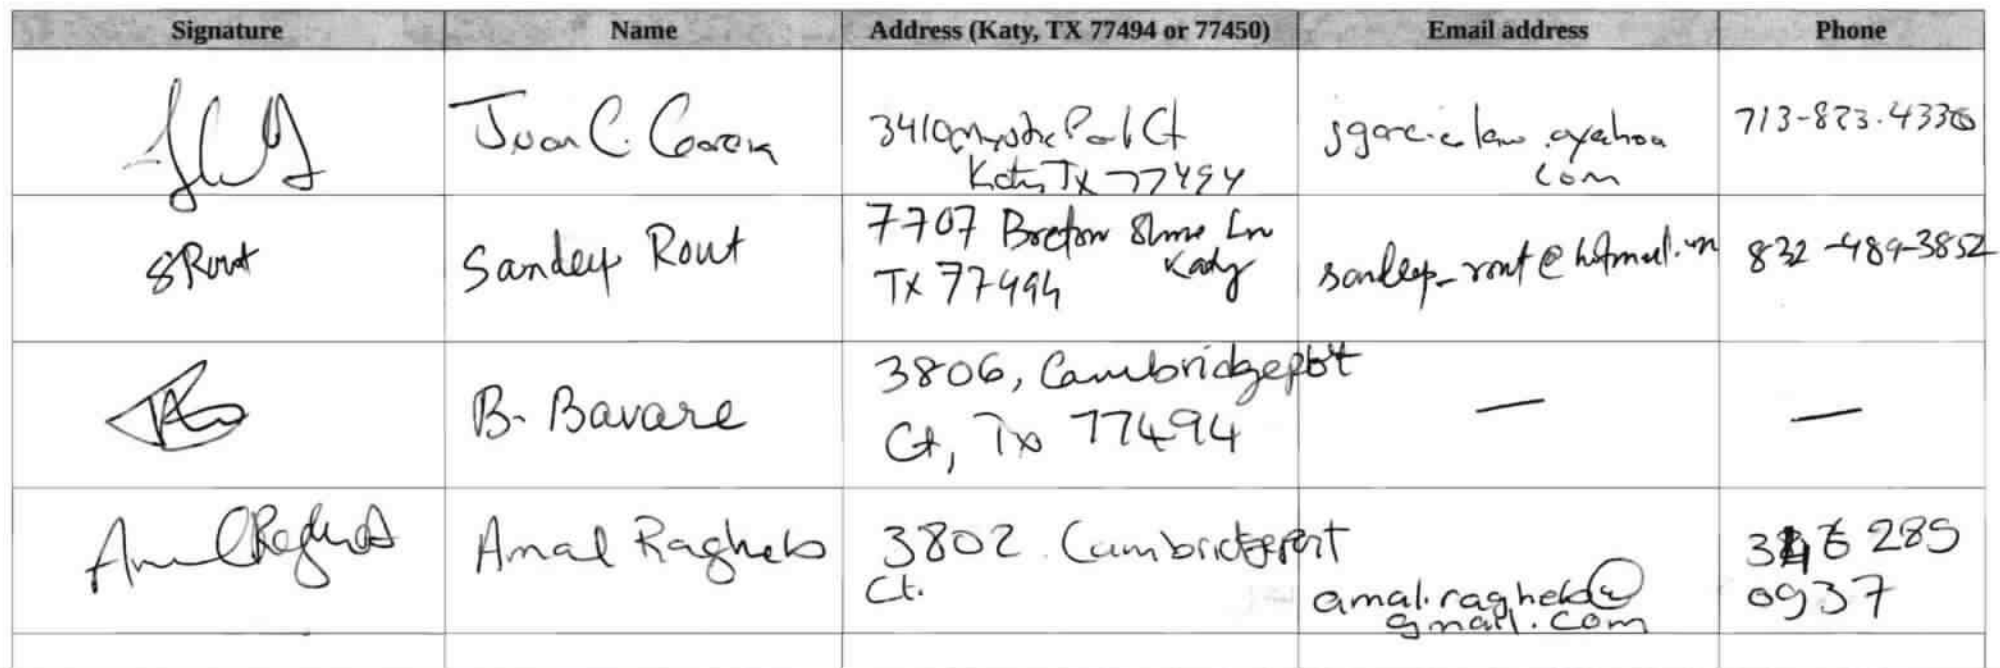 Signature Name Address (Katy, TX 77494 or 77450) Email address Phone
Juan C. Garcia
3410 Mystic Ct
Katy, TX 77494
com
713-823-433
SRout
Sandeep Rout
7707 Breton Shore Ln
Katy
TX 77494
sandeep_rout@hotmail.com
832-489-3852
B. Bavare
3806, Cambridgeport
Ct, Tx 77494
—
—
Amal Ragheb
3802 Cambridgeport
Ct.
amal.ragheb@
gmail.com
285
0937